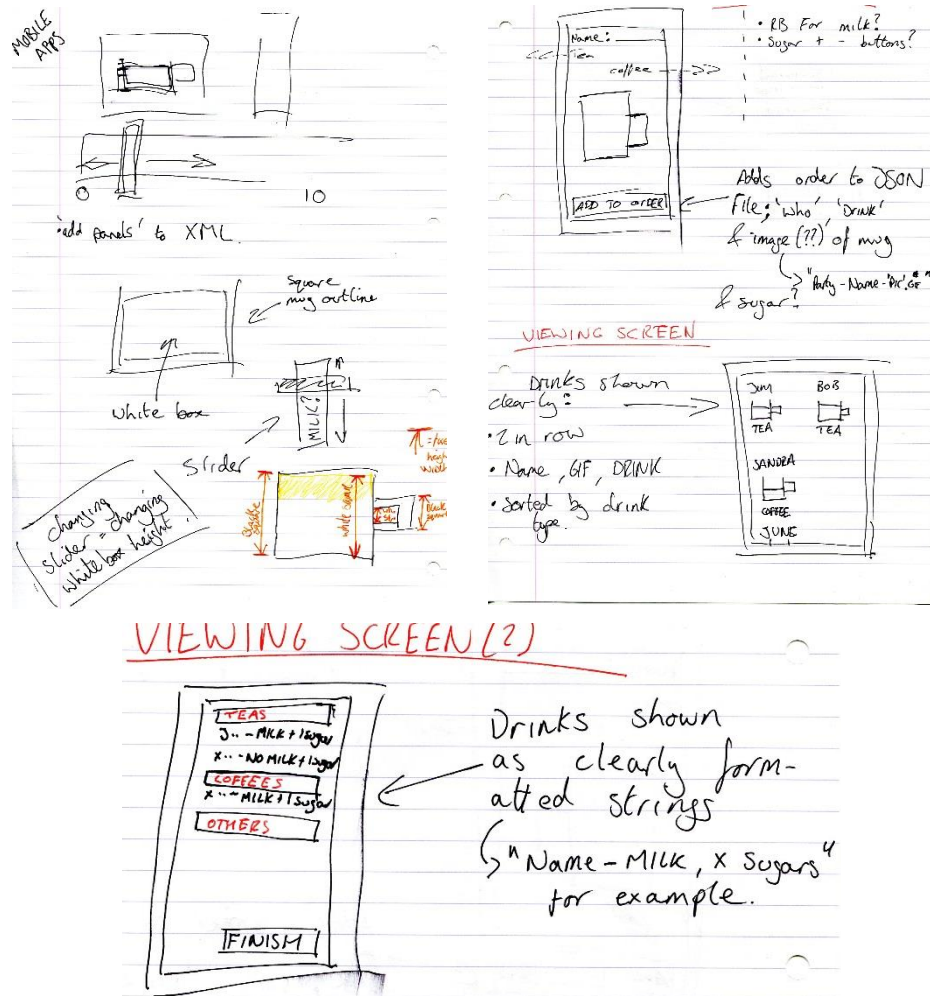 MOBILE
APPS
0
10
'add panels' to XML.
square
mug outline
white box
MILK?
slider
height
width
Black
square
white square
Black
changing
slider = changing
white box height
Name:
Tea
coffee
ADD TO ORDER
• RB For milk?
• Sugar + - buttons?
Adds order to JSON
File; 'who', 'Drink'
& image (??) of mug
"Party-Name-'Pic'.GIF"
& sugar?
VIEWING SCREEN
Drinks shown
clearly:
• 2 in row
• Name, GIF, DRINK
• Sorted by drink
type.
JIM
BOB
TEA
TEA
SANDRA
COFFEE
JUNE
VIEWING SCREEN (2)
TEAS
J.. - MILK + 1 sugar
x.. - NO MILK + 1 sugar
COFFEES
x.. - MILK + 1 sugar
OTHERS
FINISH
Drinks shown
as clearly form-
atted strings
"Name - MILK, x Sugars"
for example.